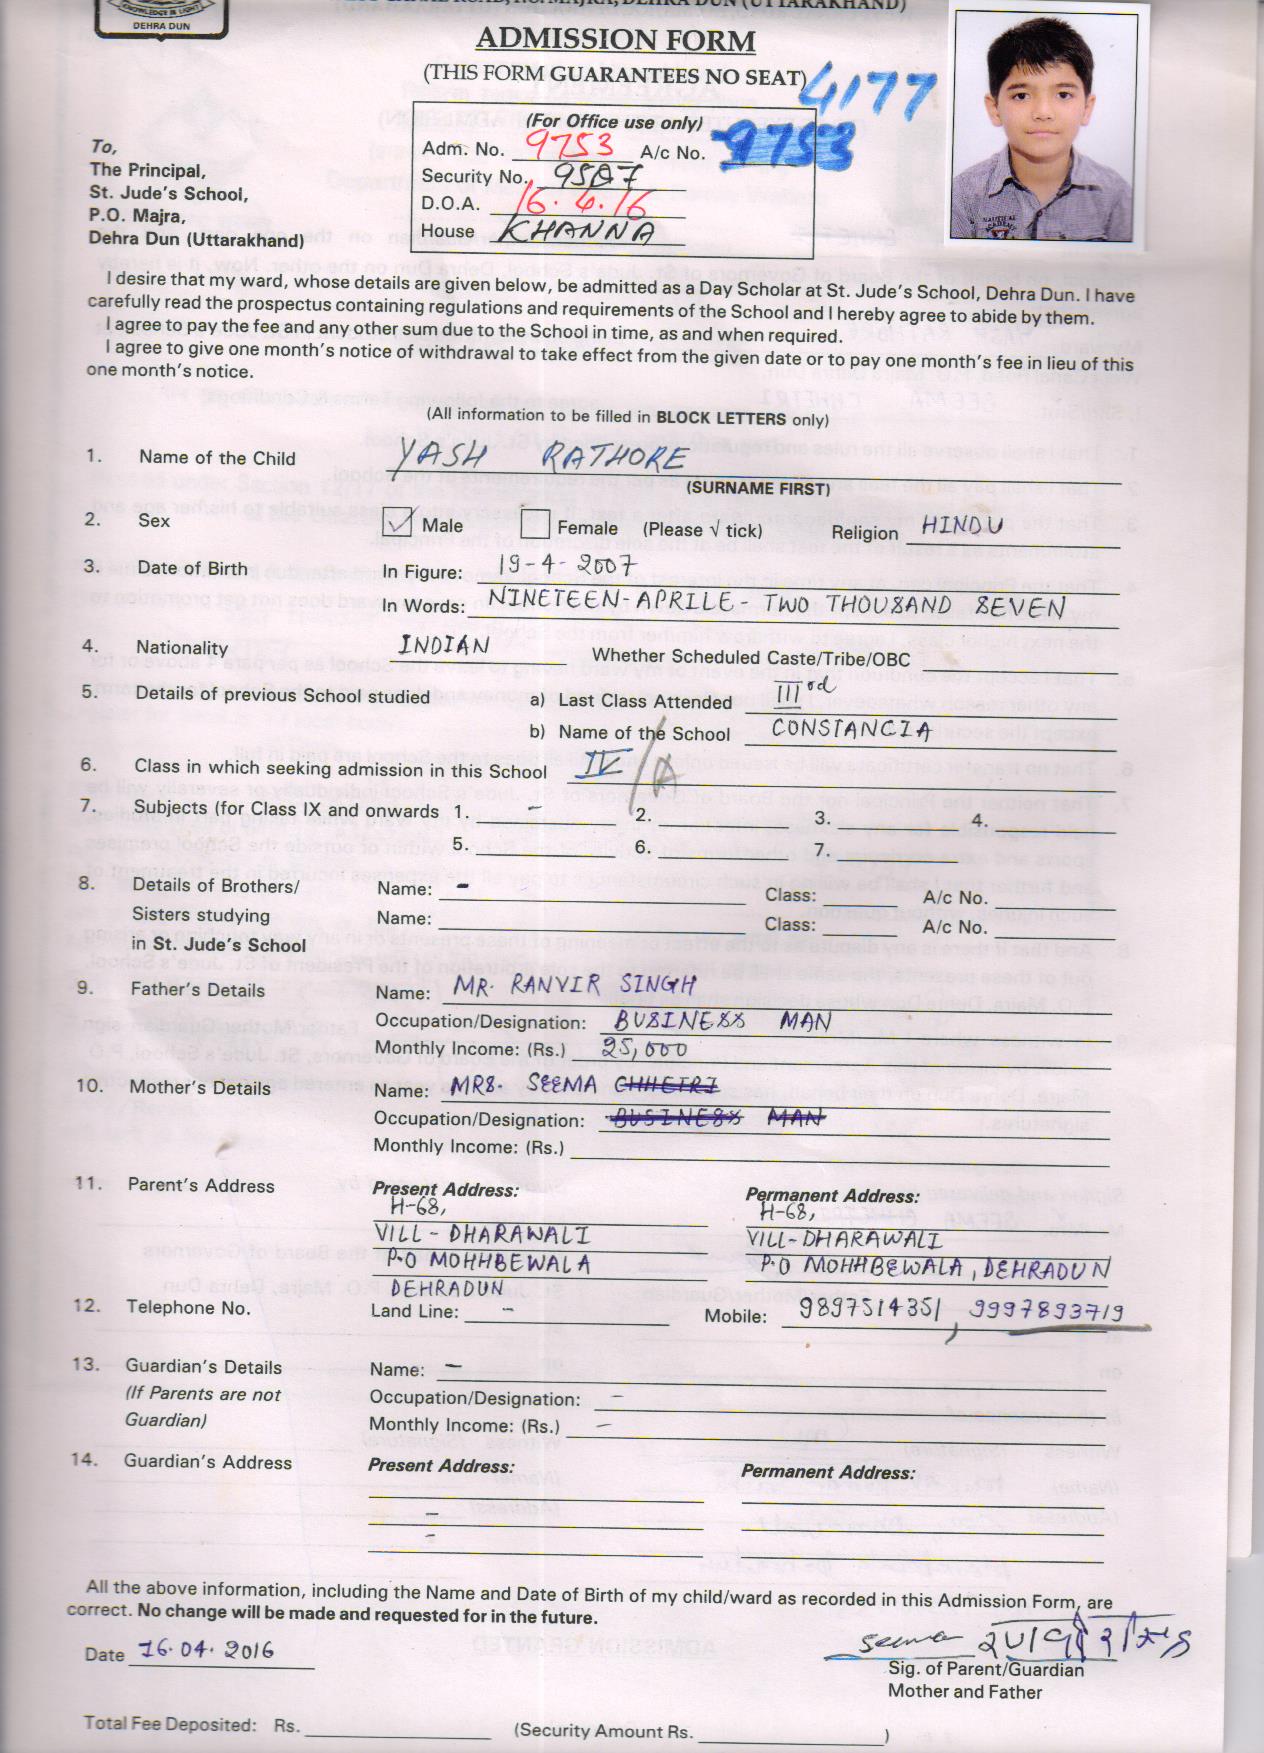 DEHRA DUN
ADMISSION FORM
(THIS FORM GUARANTEES NO SEAT)
4177
(For Office use only)
Adm. No. 9753 A/c No. 9753
Security No. 9587
D.O.A. 16.4.16
House KHANNA
To,
The Principal,
St. Jude's School,
P.O. Majra,
Dehra Dun (Uttarakhand)
I desire that my ward, whose details are given below, be admitted as a Day Scholar at St. Jude's School, Dehra Dun. I have
carefully read the prospectus containing regulations and requirements of the School and I hereby agree to abide by them.
I agree to pay the fee and any other sum due to the School in time, as and when required.
I agree to give one month's notice of withdrawal to take effect from the given date or to pay one month's fee in lieu of this
one month's notice.
(All information to be filled in BLOCK LETTERS only)
1. Name of the Child YASH RATHORE
(SURNAME FIRST)
2. Sex Male Female (Please √ tick) Religion HINDU
3. Date of Birth In Figure: 19-4-2007
In Words: NINETEEN-APRILE-TWO THOUSAND SEVEN
4. Nationality INDIAN Whether Scheduled Caste/Tribe/OBC
5. Details of previous School studied a) Last Class Attended IIIrd
b) Name of the School CONSTANCIA
6. Class in which seeking admission in this School IV/A
7. Subjects (for Class IX and onwards 1. - 2. 3. 4.
5. 6. 7.
8. Details of Brothers/ Name: - Class: A/c No.
Sisters studying Name: Class: A/c No.
in St. Jude's School
9. Father's Details Name: MR. RANVIR SINGH
Occupation/Designation: BUSINESS MAN
Monthly Income: (Rs.) 25,000
10. Mother's Details Name: MRS. SEEMA CHHETRI
Occupation/Designation: BUSINESS MAN
Monthly Income: (Rs.)
11. Parent's Address Present Address: Permanent Address:
H-68, H-68,
VILL-DHARAWALI VILL-DHARAWALI
P.O MOHHBEWALA P.O MOHHBEWALA, DEHRADUN
DEHRADUN
12. Telephone No. Land Line: - Mobile: 9897514351, 9997893719
13. Guardian's Details Name: -
(If Parents are not Occupation/Designation: -
Guardian) Monthly Income: (Rs.) -
14. Guardian's Address Present Address: Permanent Address:
-
-
All the above information, including the Name and Date of Birth of my child/ward as recorded in this Admission Form, are
correct. No change will be made and requested for in the future.
Date 16.04.2016 Seema
Sig. of Parent/Guardian
Mother and Father
Total Fee Deposited: Rs. (Security Amount Rs. )